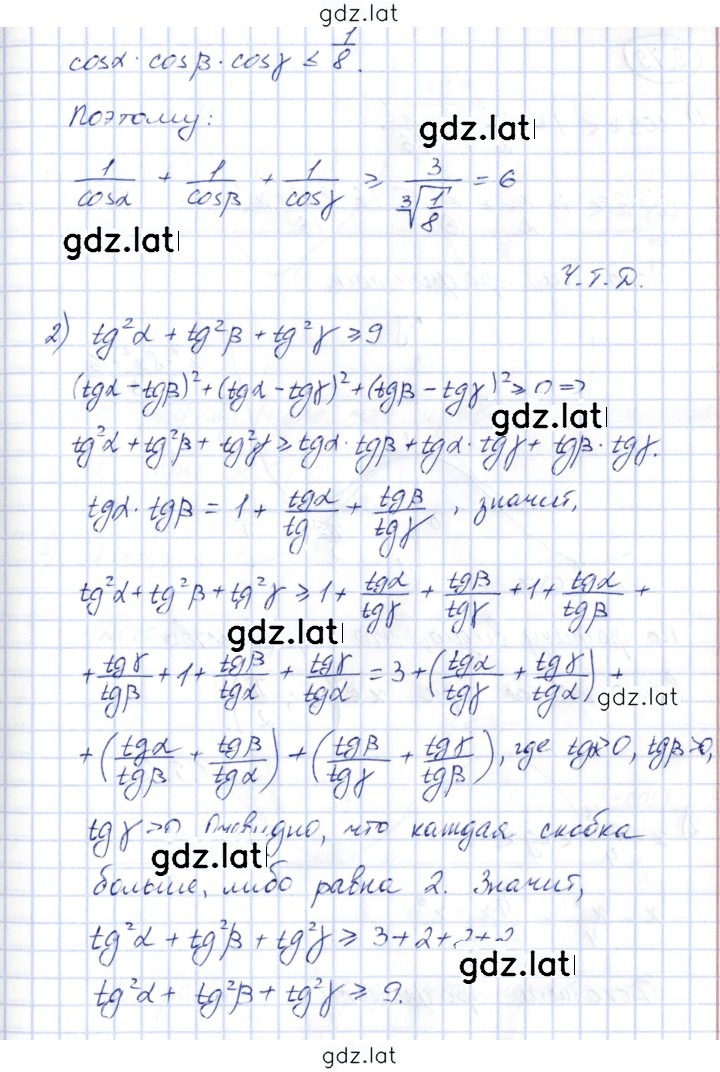 gdz.lat
cosα · cosβ · cosγ ≤ 1/8.
Поэтому:
gdz.lat
1/cosα + 1/cosβ + 1/cosγ ≥ 3/∛(1/8) = 6
gdz.lat
Ч.Т.Д.
2) tg²α + tg²β + tg²γ ≥ 9
(tgα − tgβ)² + (tgα − tgγ)² + (tgβ − tgγ)² ≥ 0 =>
gdz.lat
tg²α + tg²β + tg²γ ≥ tgα · tgβ + tgα · tgγ + tgβ · tgγ.
tgα · tgβ = 1 + tgα/tg + tgβ/tgγ, значит,
tg²α + tg²β + tg²γ ≥ 1 + tgα/tgγ + tgβ/tgγ + 1 + tgα/tgβ +
gdz.lat
+ tgγ/tgβ + 1 + tgβ/tgα + tgγ/tgα = 3 + (tgα/tgγ + tgγ/tgα) +
gdz.lat
+ (tgα/tgβ + tgβ/tgα) + (tgβ/tgγ + tgγ/tgβ), где tgα>0, tgβ>0,
tgγ>0 Очевидно, что каждая скобка
gdz.lat
больше, либо равна 2. Значит,
tg²α + tg²β + tg²γ ≥ 3+2+2+2
gdz.lat
tg²α + tg²β + tg²γ ≥ 9.
gdz.lat